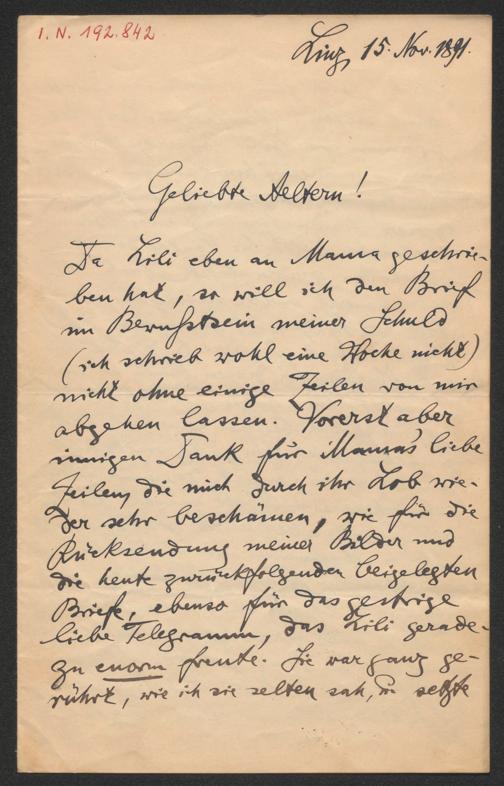 I. N. 192.842
Linz, 15. Nov. 1891.
Geliebte Aeltern!
Da Lili eben an Mama geschrie-
ben hat, so will ich den Brief
im Bewußtsein meiner Schuld
(ich schrieb wohl eine Woche nicht)
nicht ohne einige Zeilen von mir
abgehen lassen. Vorerst aber
innigen Dank für Mama's liebe
Zeilen, die mich durch ihr Lob wie-
der sehr beschämen, wie für die
Rücksendung meiner Bilder und
die heute zurückfolgenden beigelegten
Briefe, ebenso für das gestrige
liebe Telegramm, das Lili gerade-
zu enorm freute. Sie war ganz ge-
rührt, wie ich sie selten sah, u. setzte